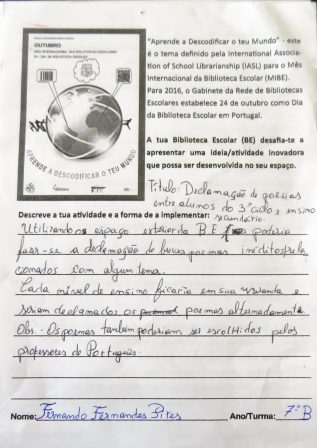 OUTUBRO
MÊS INTERNACIONAL DAS BIBLIOTECAS ESCOLARES
APRENDE A DESCODIFICAR O TEU MUNDO
"Aprende a Descodificar o teu Mundo" - este
é o tema definido pela International Associa-
tion of School Librarianship (IASL) para o Mês
Internacional da Biblioteca Escolar (MIBE).
Para 2016, o Gabinete da Rede de Bibliotecas
Escolares estabelece 24 de outubro como Dia
da Biblioteca Escolar em Portugal.
A tua Biblioteca Escolar (BE) desafia-te a
apresentar uma ideia/atividade inovadora
que possa ser desenvolvida no seu espaço.
Título: Declamação de poesias
entre alunos do 3º ciclo e ensino
secundário.
Descreve a tua atividade e a forma de a implementar:
Utilizando o espaço exterior da BE, poderia
fazer-se a declamação de breves poemas inéditos, rela
cionados com algum tema.
Cada nível de ensino ficaria em sua varanda e
seriam declamados os poemas alternadamente.
Obs. Os poemas também poderiam ser escolhidos pelos
professores de Português.
Nome: Fernando Fernandes Pires Ano/Turma: 7º B